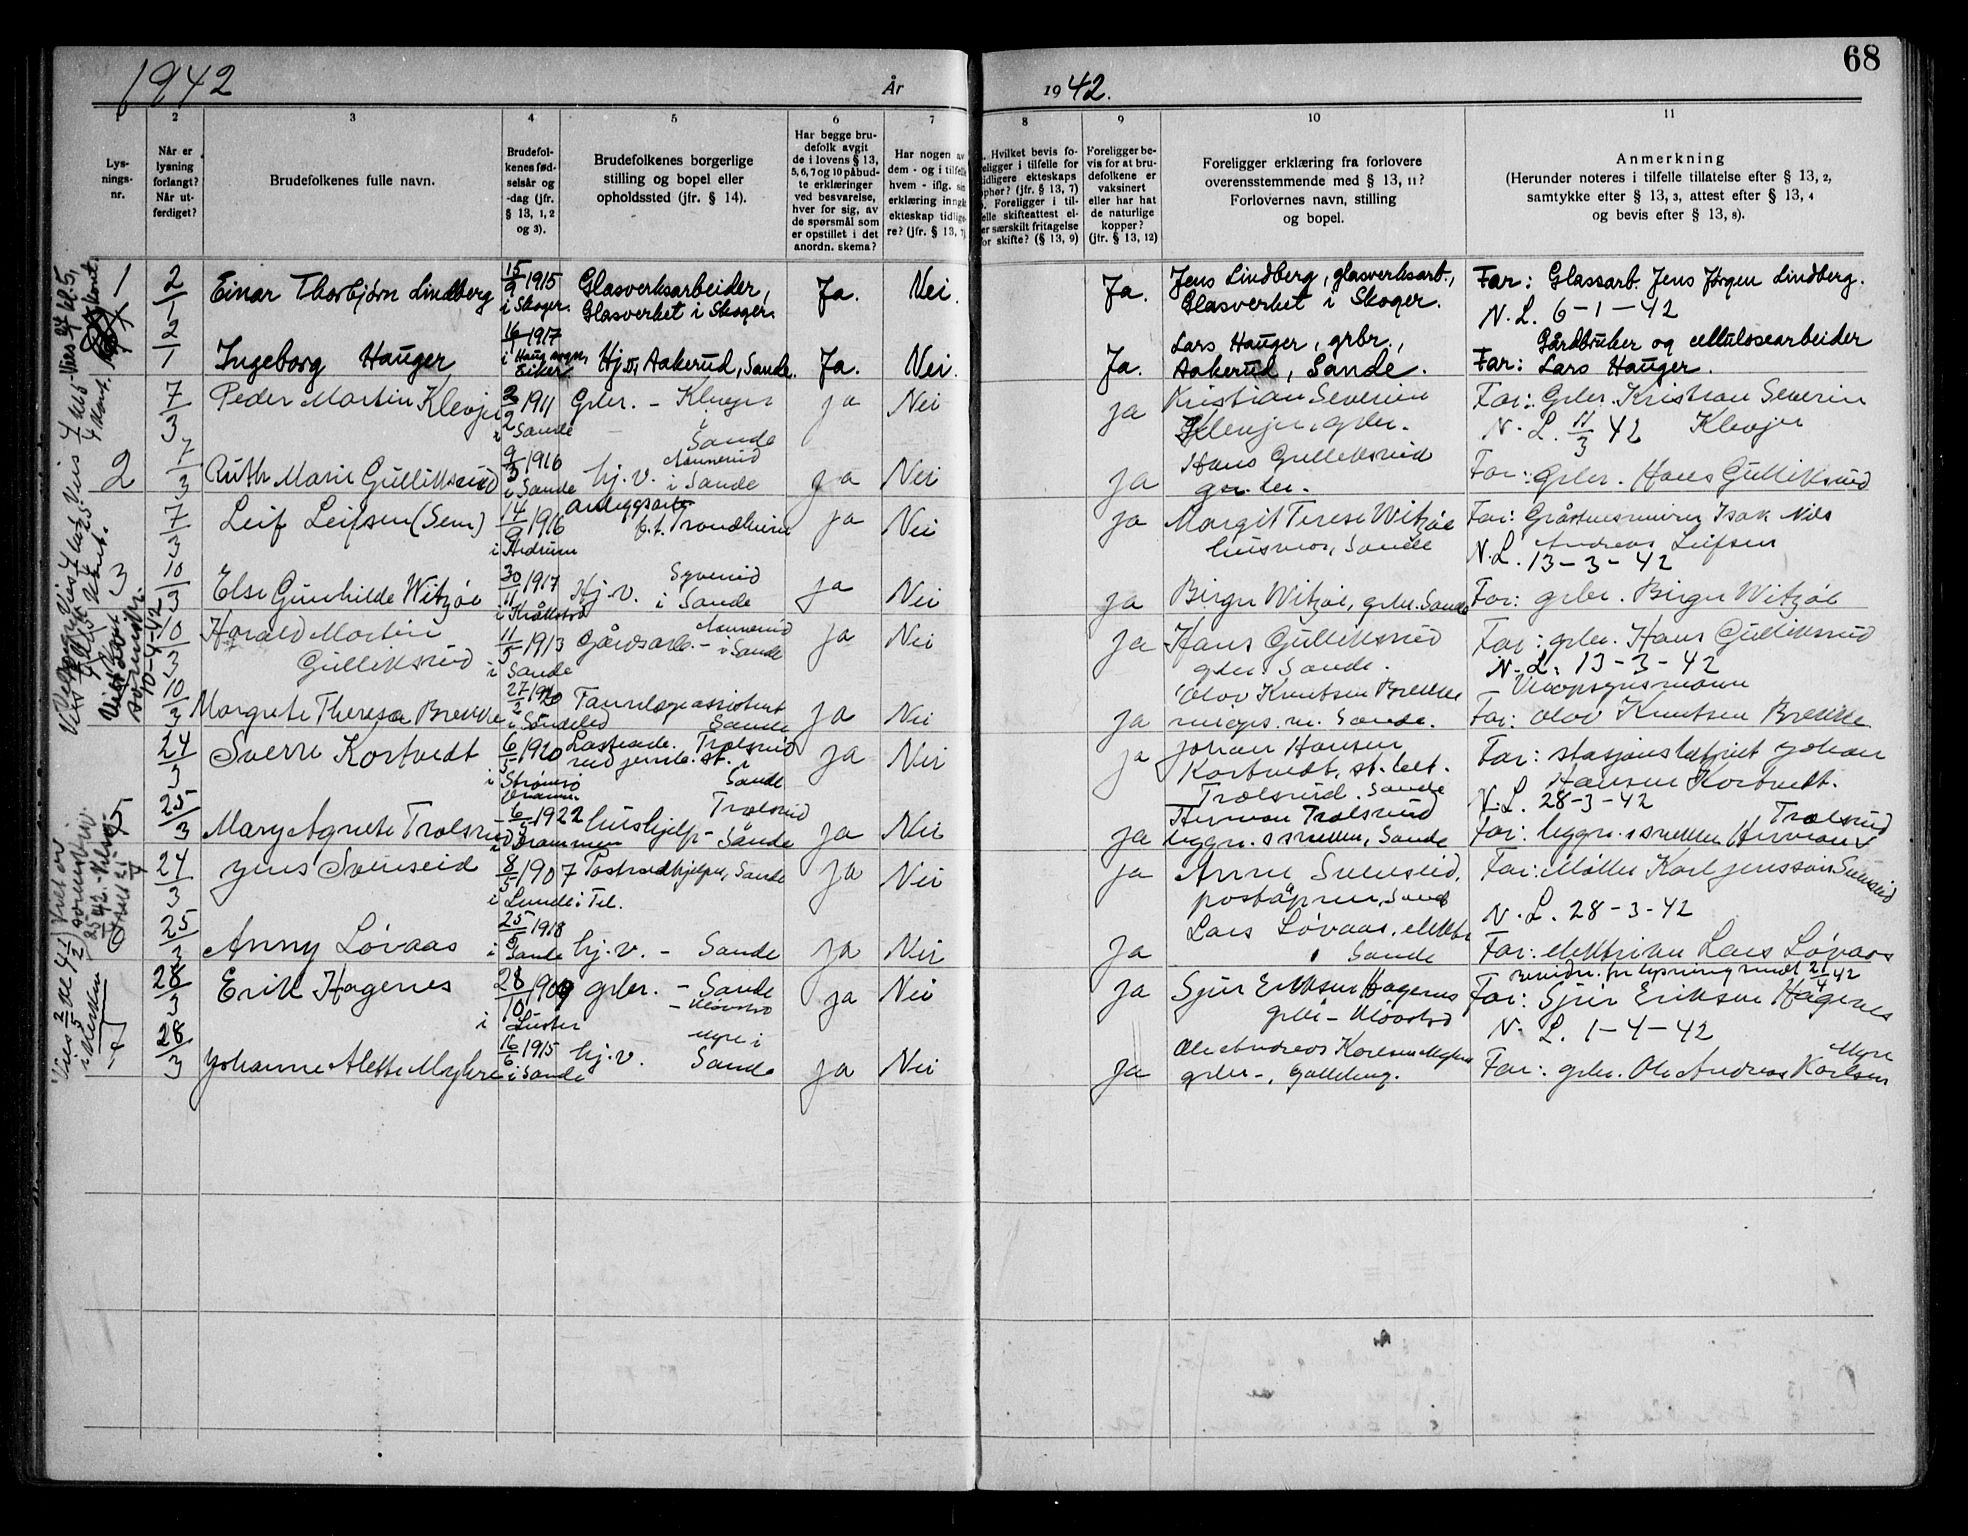 1942
År
1942.
68
1
Lys-
nings-
nr.
2
Når er
lysning
forlangt?
Når ut-
ferdiget?
3
Brudefolkenes fulle navn.
4
Brudefol-
kenes fød-
selsår og
-dag (jfr.
§ 13, 1, 2
og 3).
5
Brudefolkenes borgerlige
stilling og bopel eller
opholdssted (jfr. § 14).
6
Har begge bru-
defolk avgit
de i lovens § 13,
5, 6, 7 og 10 påbud-
te erklæringer
ved besvarelse,
hver for sig, av
de spørsmål som
er opstillet i det
anordn. skema?
7
Har nogen av
dem - og i tilfelle
hvem - iflg. sin
erklæring inngå
ekteskap tidlige-
re? (jfr. § 13, 7)
8
Hvilket bevis fo-
religger i tilfelle for
tidligere ekteskaps
ophør? (jfr. § 13, 7)
Foreligger i til-
felle skifteattest el-
er særskilt fritagelse
for skifte? (§ 13, 9)
9
Foreligger be-
vis for at bru-
defolkene er
vaksinert
eller har hat
de naturlige
kopper?
(jfr. § 13, 12)
10
Foreligger erklæring fra forlovere
overensstemmende med § 13, 11?
Forlovernes navn, stilling
og bopel.
11
Anmerkning
(Herunder noteres i tilfelle tillatelse efter § 13, 2,
samtykke efter § 13, 3, attest efter § 13, 4
og bevis efter § 13, 8).
1
2/1
Einar Thorbjørn Lindberg
15/9 1915
i Skoger.
Glasverksarbeider,
Glasverket i Skoger.
Ja.
Nei.
Ja.
Jens Lindberg, glasverksarb.,
Glasverket i Skoger.
Far: Glassarb. Jens Jørgen Lindberg.
N.L. 6-1-42
2/1
Ingeborg Hauger
16/ 1917
i Haug sogn,
Eiker
Hj. Aakerud, Sande.
Ja.
Nei.
Ja.
Lars Hauger, grbr.,
Aakerud, Sande.
Gårdbruker og cellulosearbeider
Far: Lars Hauger.
7/3
Peder Martin Klevjer
2/2 1911
i Sande
Grbr. - Klevjer
i
Sande
ja
Nei
ja
Kristian Severin
Klevjer, grbr.
Far: Grbr. Kristian Severin
Klevjer
N.L. 11/3 42
2
7/3
Ruth Marie Gulliksrud
9/3 1916
i Sande
hj.v. i Sande
ja
Nei
ja
Hans Gulliksrud
Far: grbr. Hans Gulliksrud
7/3
Leif Leifsen (Sem)
14/9 1916
Anleggsarb.
f.t. Trondheim
ja
Nei
ja
Margit Terese Witzøe
husmor, Sande
Andreas Leifsen
N.L. 13-3-42
3
10/3
Else Gunhilde Witzøe
30/11 1917
i Kråkstad
Hj.v. i Sande
ja
Nei
ja
Birger Witzøe, grbr. Sande
Far: grbr. Birger Witzøe
10/3
Harald Martin
Gulliksrud
11/5 1913
i Sande
gårdsarb. -
i Sande
ja
Nei
ja
Hans Gulliksrud
grbr. Sande.
Far: grbr. Hans Gulliksrud
N.L. 13-3-42
10/3
Margrete Theresa Brekke
27/2 1920
i Søndeled
Tannlægeassistent
Sande
ja
Nei
ja
Olav Knutsen Brekke
Sande.
Far: Olav Knutsen Brekke
24/3
Sverre Kortvedt
6/5 1920
i Strømsø
Sande
ja
Nei
ja
Johan Hansen
Kortvedt, st.bet.
Trolsrud. Sande
Far: stasjonsbetjent Johan
Hansen Kortvedt.
N.L. 28-3-42
5
25/3
Mary Agnete Trolsrud
6/5 1922
i Drammen
Trolsrud
hushjelp - Sande
ja
Nei
ja
Herman Trolsrud
byggm. snekker, Sande
Trolsrud
Far: byggm. snekker Herman
24/3
Jens Svenseid
8/5 1907
i Lunde i Tel.
Postbudhjelper, Sande
ja
Nei
ja
Anne Svenseid,
poståpner, Sande
Far: Møller Karl Jenssøn Svenseid
N.L. 28-3-42
25/3
Anny Løvaas
25/5 1918
Sande
hj.v. - Sande
ja
Nei
ja
Lars Løvaas, elektr.
Sande
Far: elektriker Lars Løvaas
28/3
Erik Hagenes
28/10 1909
i Luster
grbr. - Sande
ja
Nei
ja
Sjur Eriksen Hagenes
Far: Sjur Eriksen Hagenes
N.L. 1-4-42
7
28/3
Johanne Alette Myhre
16/6 1915
i Sande
Myre i
hj.v. Sande
ja
Nei
ja
Ole Andreas Karlsen Myhre
grbr., Galleberg.
Myre
Far: grbr. Ole Andreas Karlsen